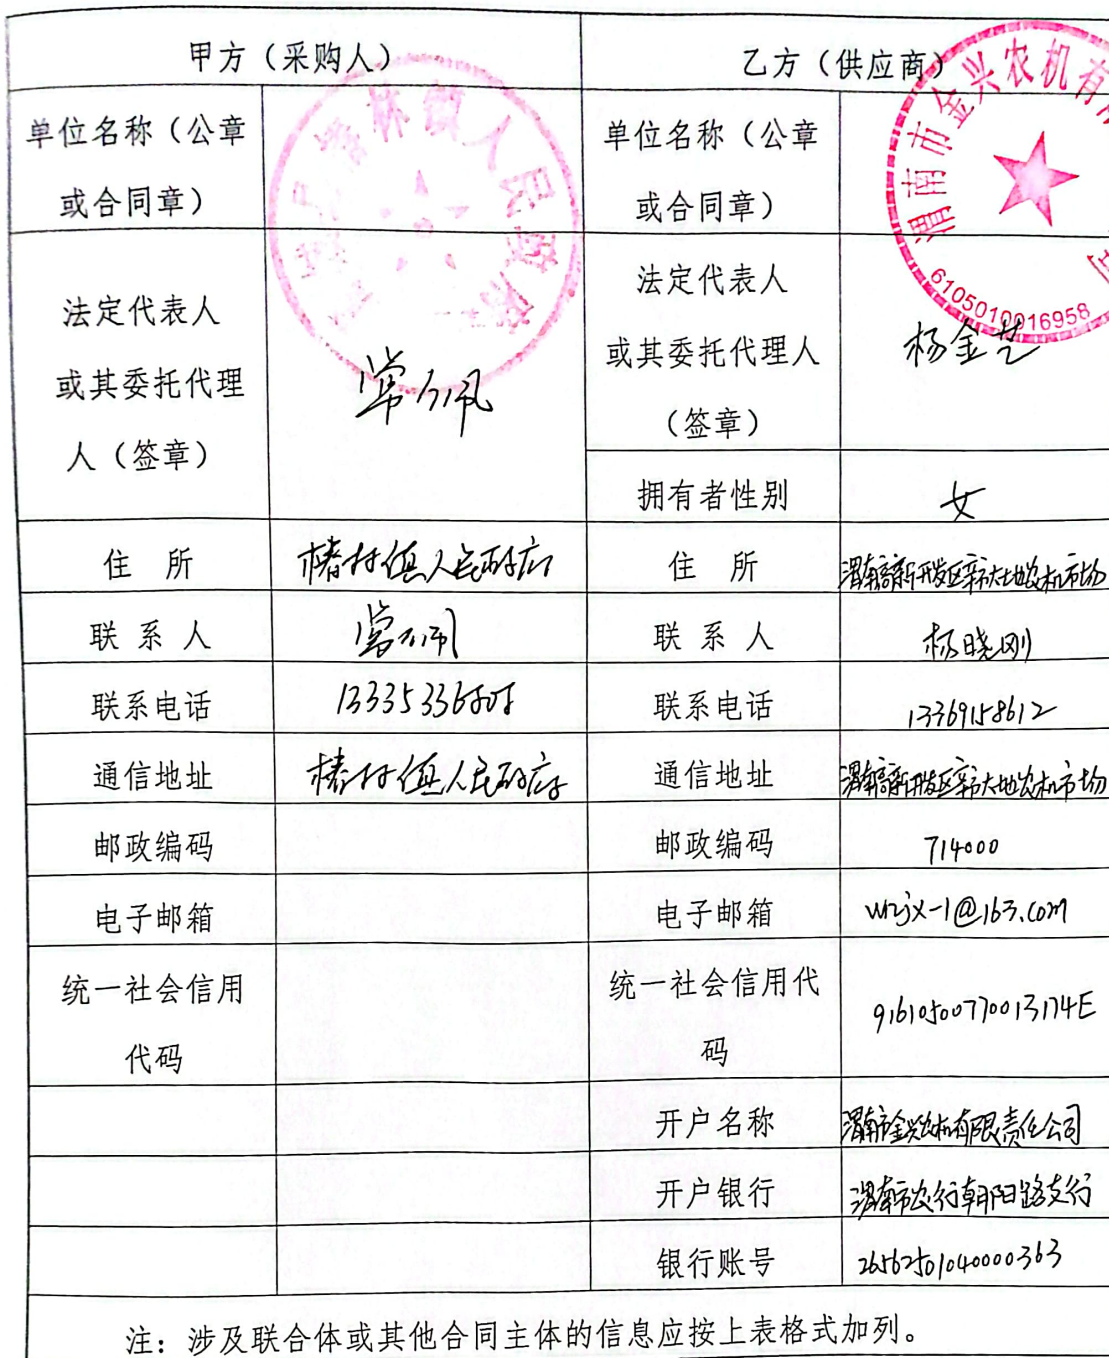 甲方（采购人）
乙方（供应商）
单位名称（公章
或合同章）
林镇人民政府
单位名称（公章
或合同章）
渭南市金兴农机有
司
6105010016958
法定代表人
或其委托代理
人（签章）
法定代表人
或其委托代理人
（签章）
杨金艺
拥有者性别
女
住 所
人民政府
住 所
渭南高新开发区辛市大地农机市场
联 系 人
联 系 人
杨晓刚
联系电话
联系电话
13369158612
通信地址
人民政府
通信地址
渭南高新开发区辛市大地农机市场
邮政编码
邮政编码
714000
电子邮箱
电子邮箱
wnjx-1@163.com
统一社会信用
代码
统一社会信用代
码
91610500770013174E
开户名称
渭南市金兴农机有限责任公司
开户银行
渭南市农行朝阳路支行
银行账号
26562501040000363
注：涉及联合体或其他合同主体的信息应按上表格式加列。